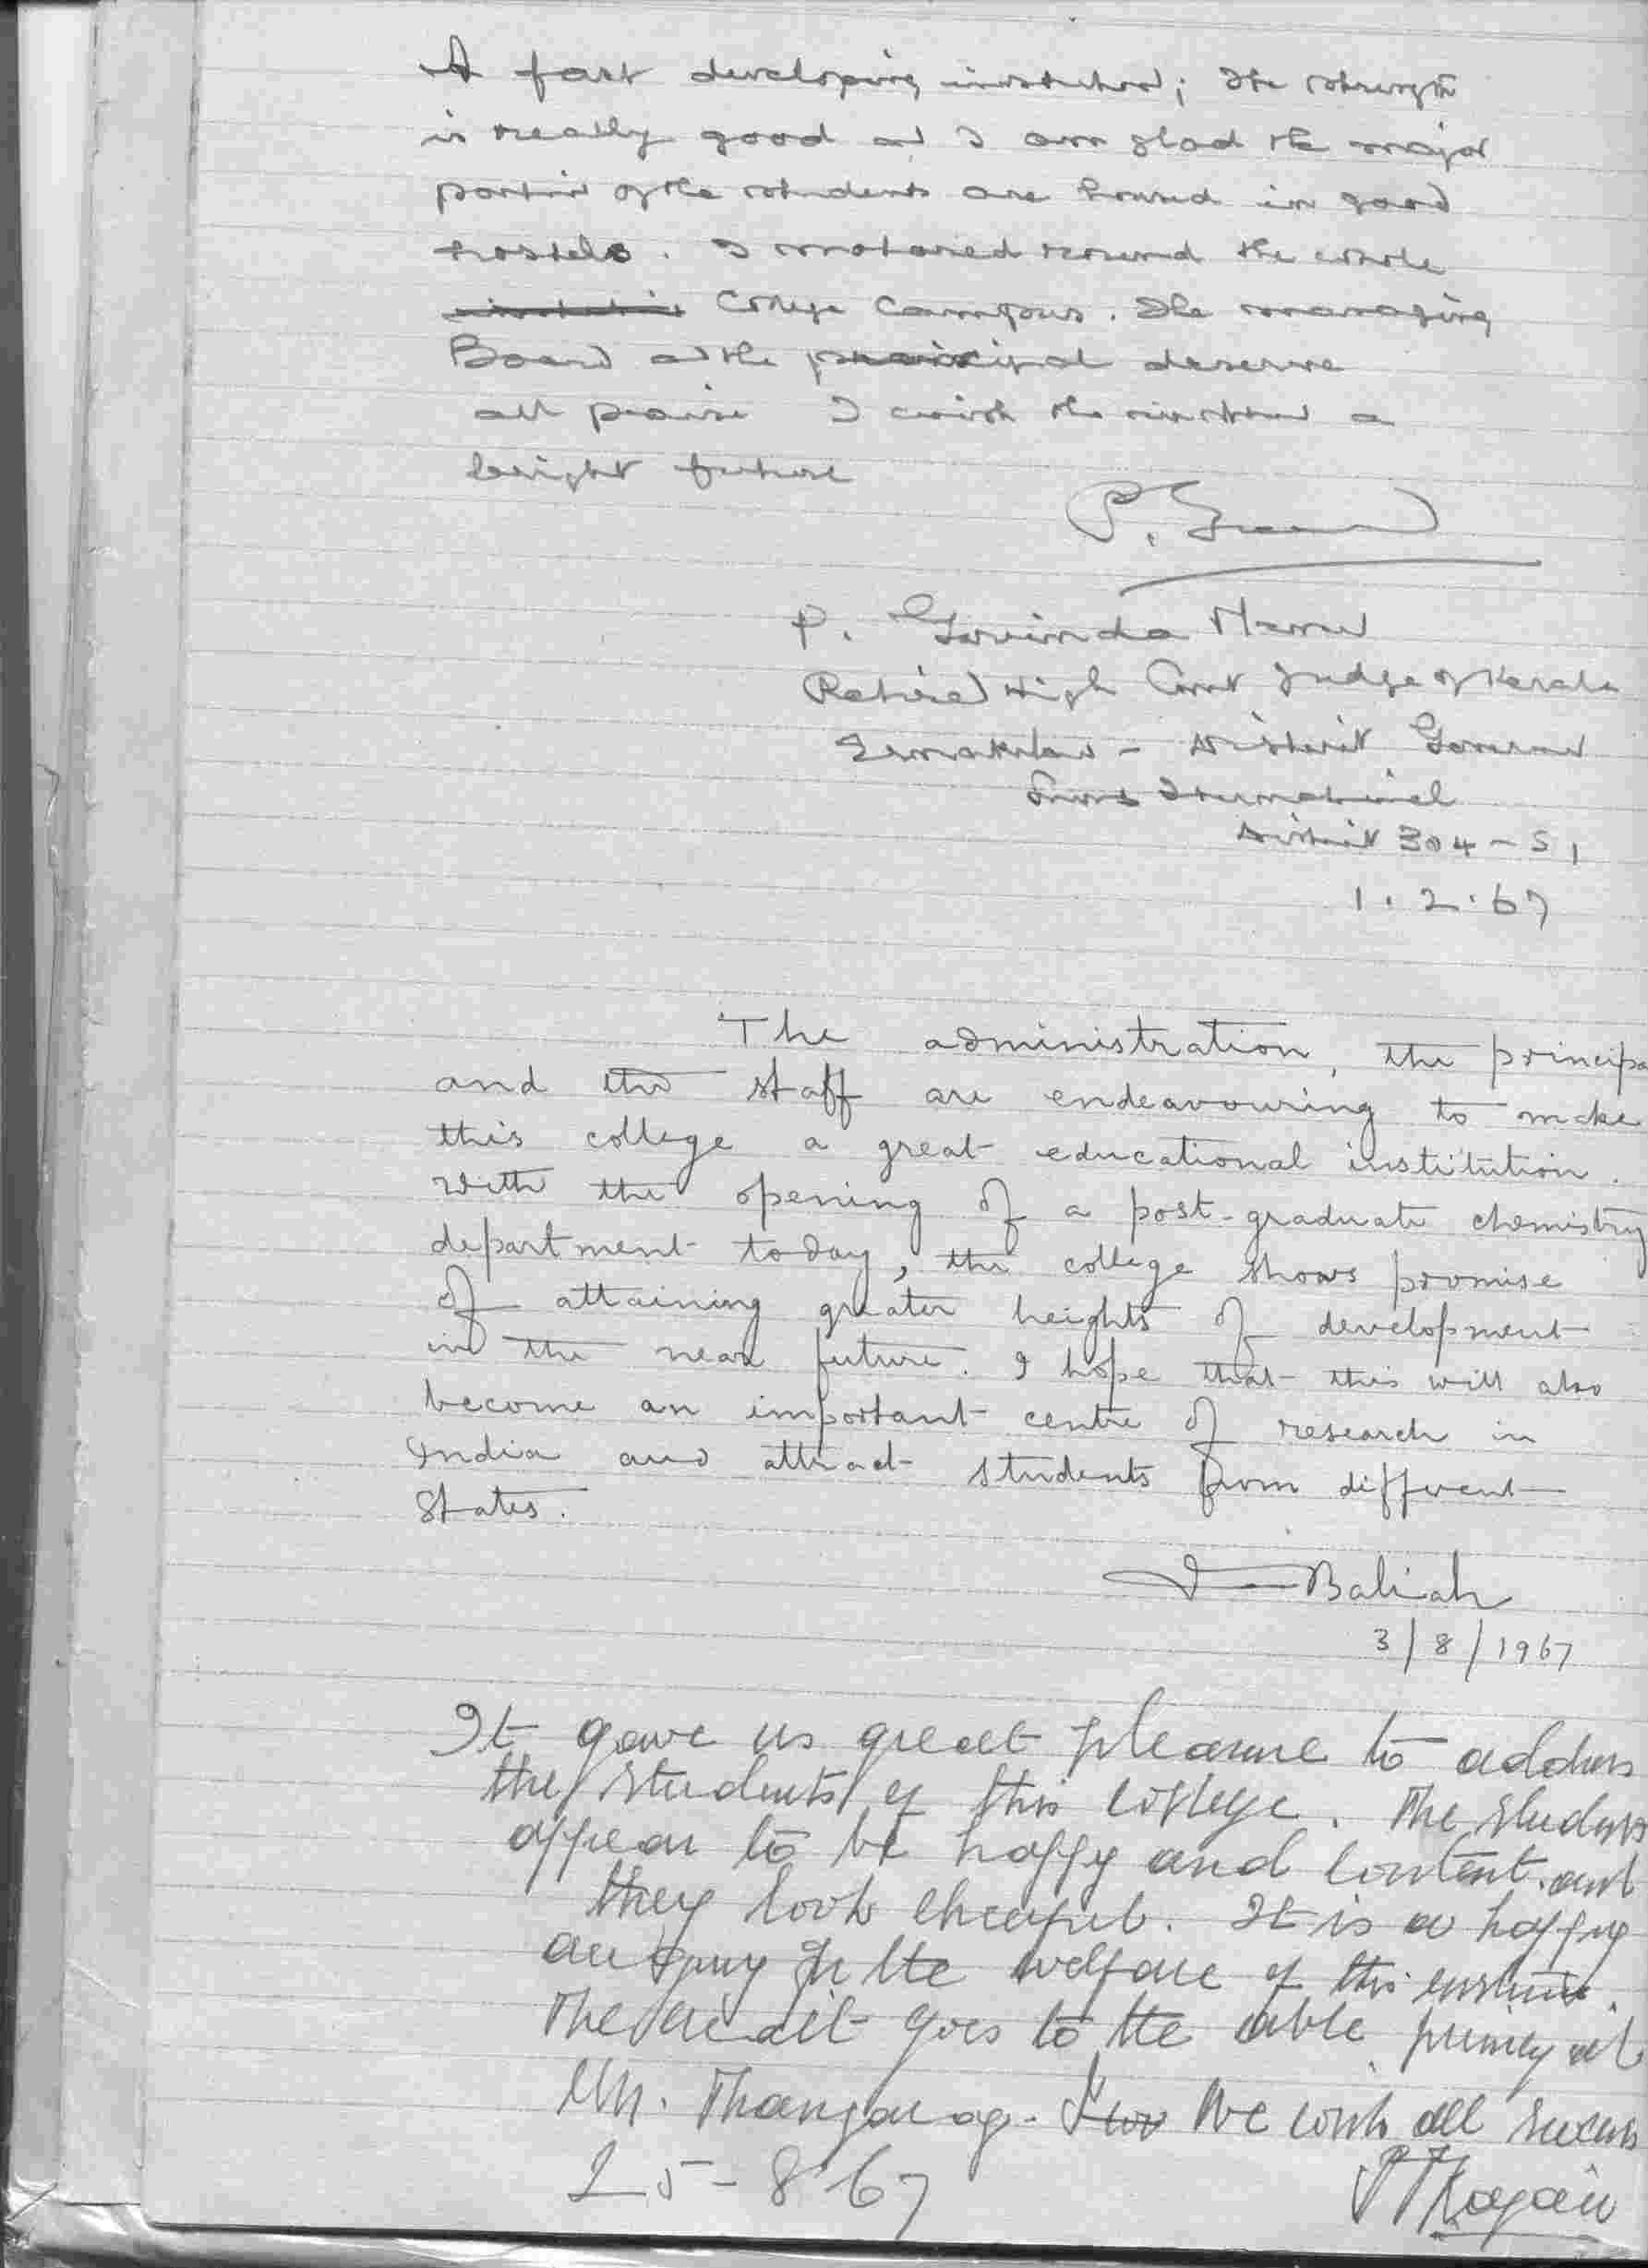 A fast developing institution; The strength
is really good and I am glad the major
portion of the students are housed in good
hostels. I motored round the whole
College Campus. The managing
Board and the principal deserve
all praise I wish the institution a
bright future
P. Govinda Menon
Retired High Court Judge of Kerala
Ernakulam - District Governor
Lions International
District 304-S1
1.2.67
The administration, the principa
and the staff are endeavouring to make
this college a great educational institution.
With the opening of a post-graduate chemistry
department today, the college shows promise
of attaining greater heights of development
in the near future. I hope that this will also
become an important centre of research in
India and attract students from different
States.
Baliah
3/8/1967
It gave us great pleasure to address
the students of this college. The students
appear to be happy and content. and
they look cheerful. It is a happy
augury for the welfare of this
The credit goes to the able principal
Mr. Thangaraj. We wish all success
25-8-67